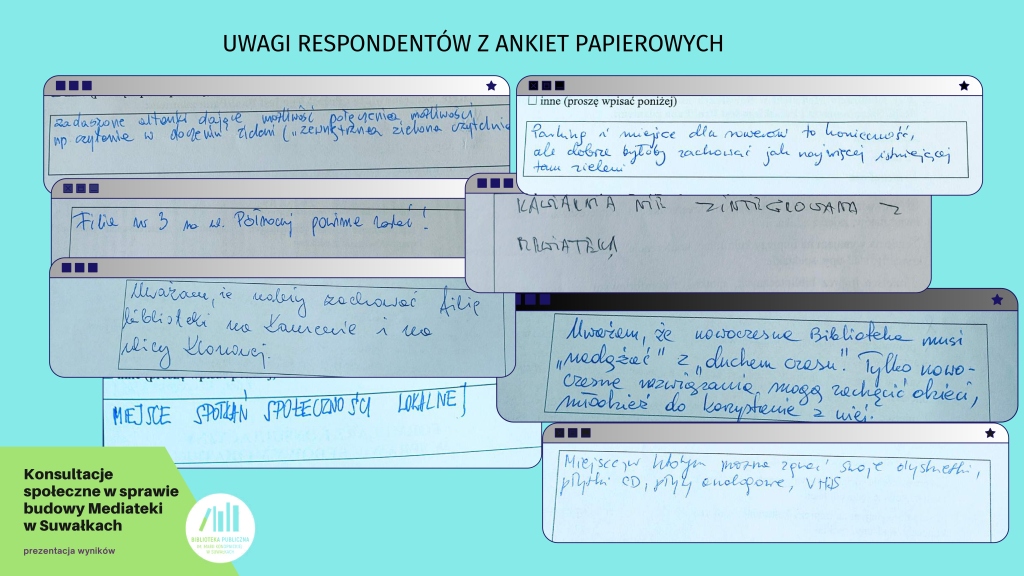 UWAGI RESPONDENTÓW Z ANKIET PAPIEROWYCH
zadaszone altanki dające możliwość połączenia możliwości
np czytania w otoczeniu zieleni (zewnętrzna zielona czytelnia
Filia nr 3 na ul. Północnej powinna zostać!
Uważam, że należy zachować filię
biblioteki na Kamenie i na
ulicy Klonowej.
MIEJSCE SPOTKAŃ SPOŁECZNOŚCI LOKALNEJ
inne (proszę wpisać poniżej)
Parking i miejsce dla rowerów to konieczność,
ale dobrze byłoby zachować jak najwięcej istniejącej
tam zieleni
KAWIARNIA NIE ZINTEGROWANA Z
MEDIATEKĄ
Uważam, że nowoczesna Biblioteka musi
„nadążać" z „duchem czasu". Tylko nowo-
czesne rozwiązania mogą zachęcić dzieci,
młodzież do korzystania z niej.
Miejsce w którym można zgrać swoje dyskietki,
płytki CD, płyty analogowe, VHS
Konsultacje
społeczne w sprawie
budowy Mediateki
w Suwałkach
prezentacja wyników
BIBLIOTEKA PUBLICZNA
IM. MARII KONOPNICKIEJ
W SUWAŁKACH